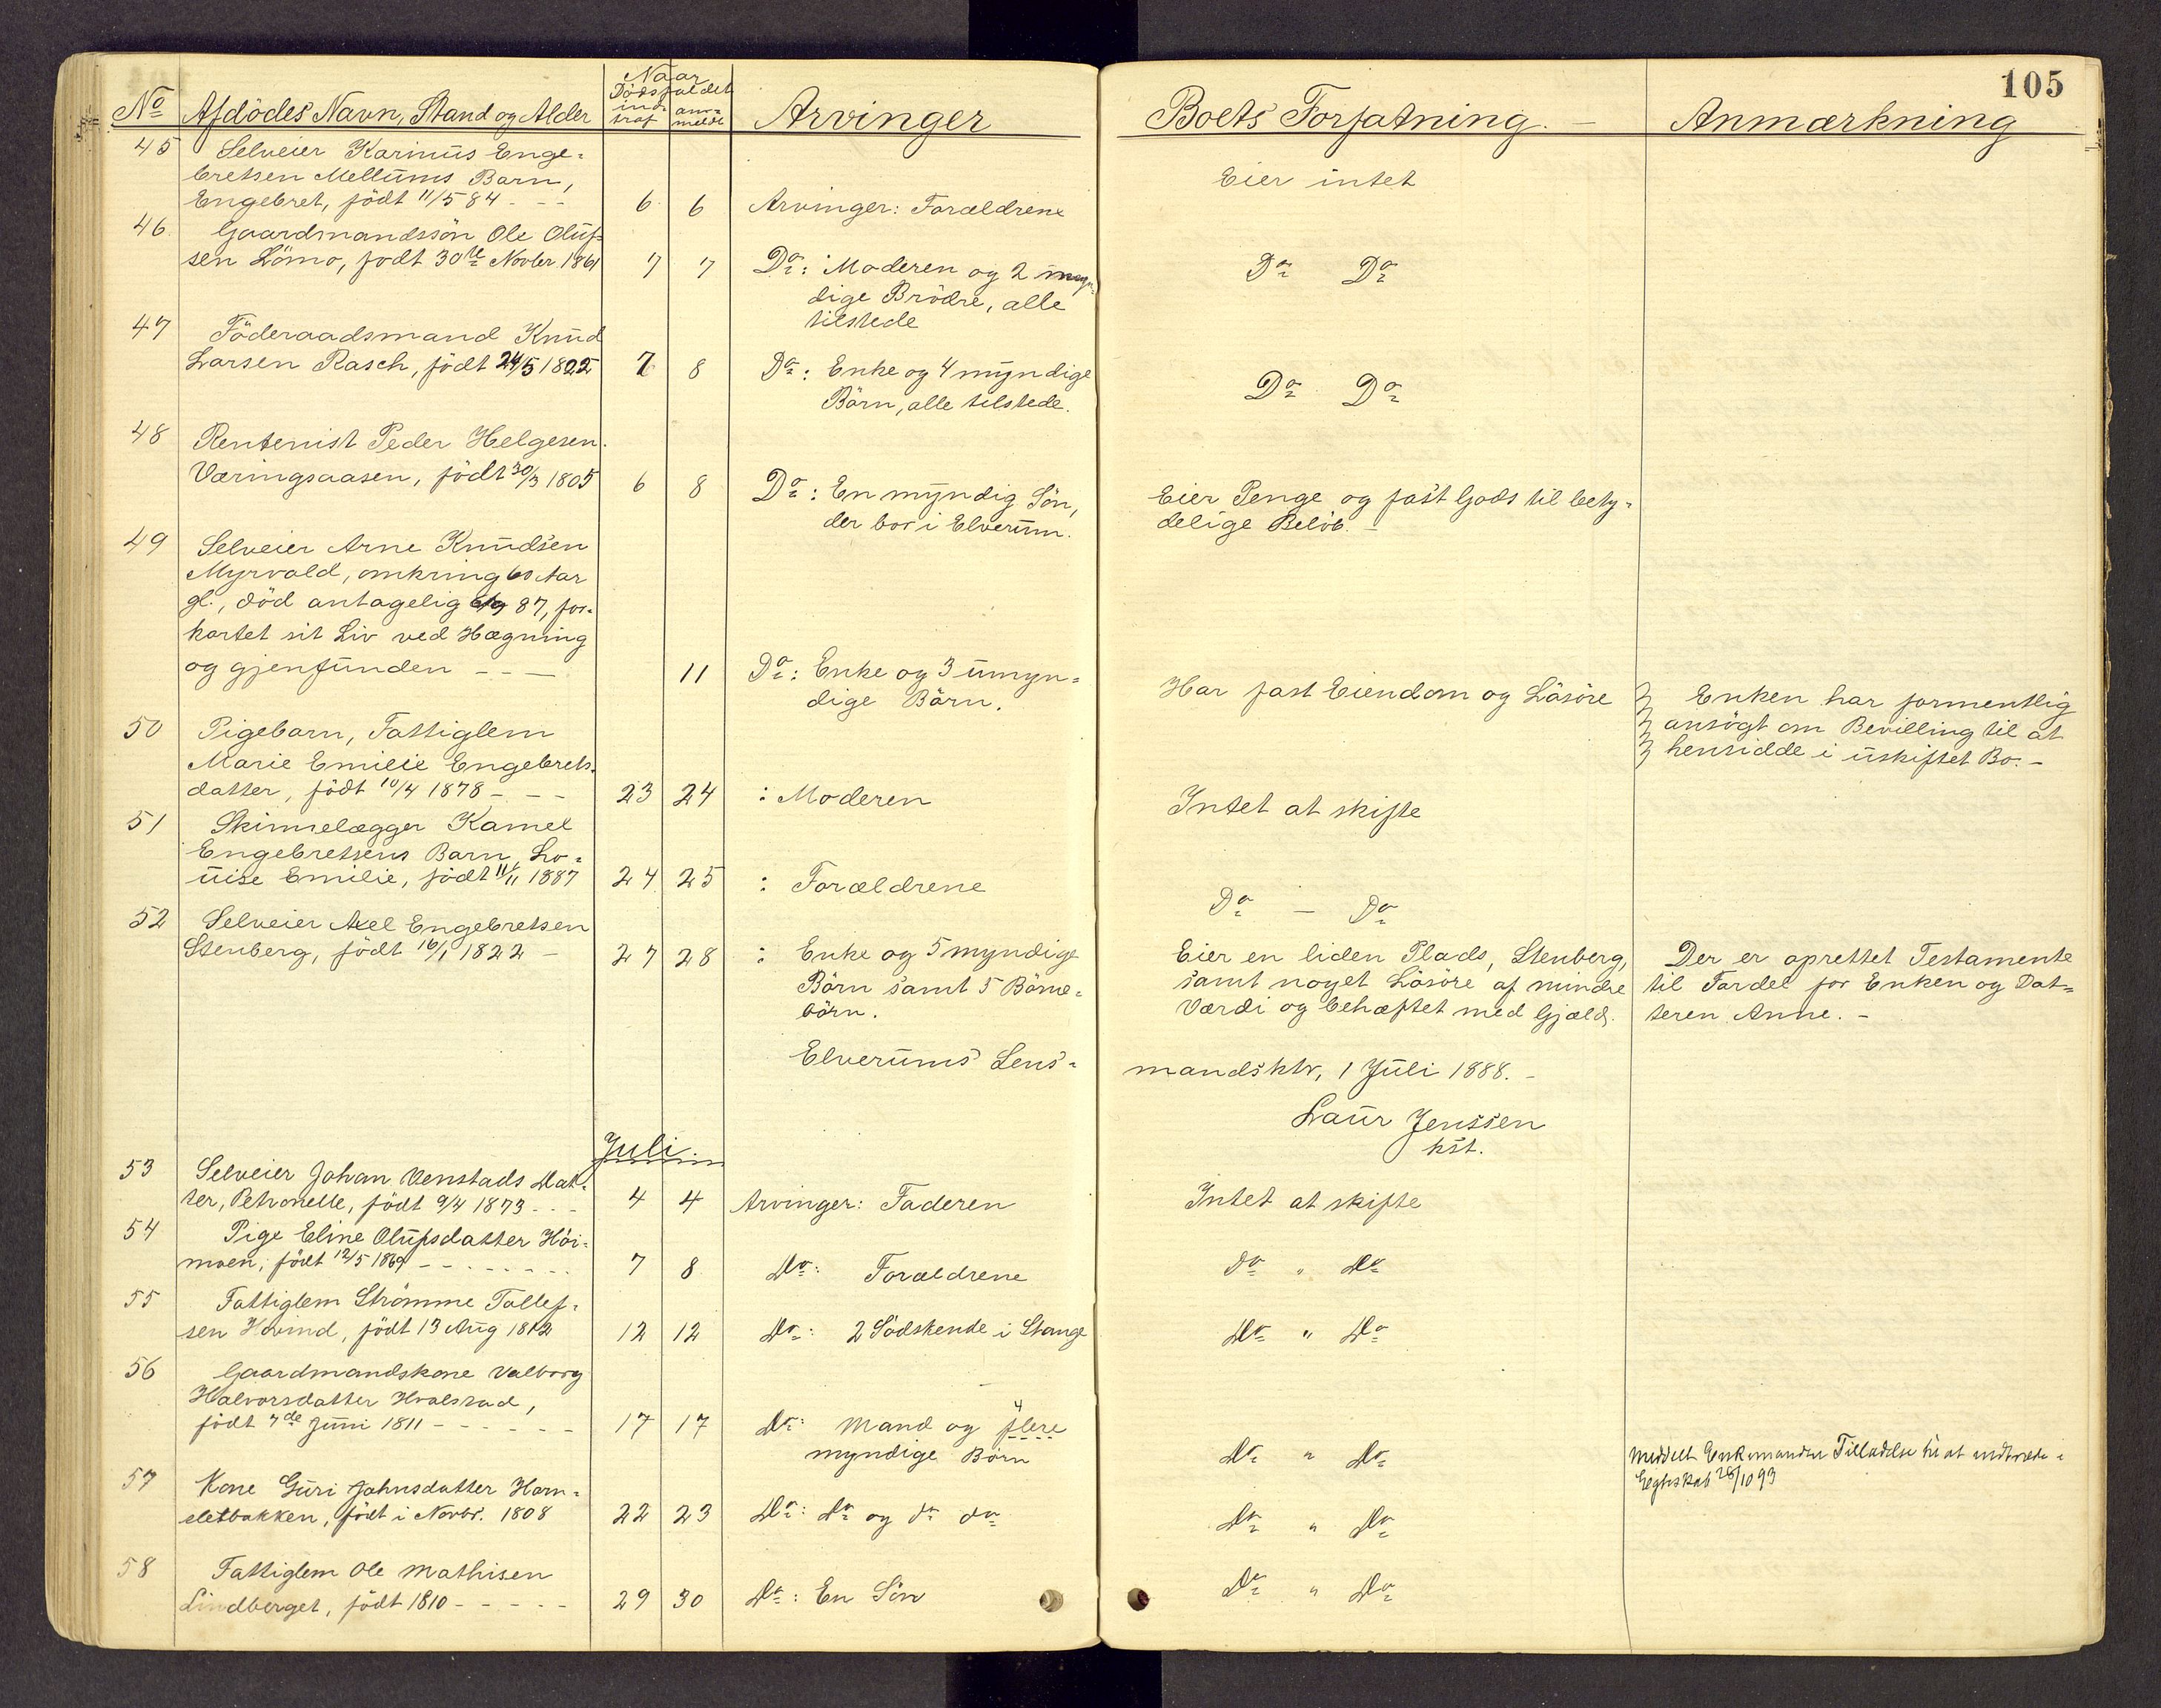 105
Naar
Dödsfaldet
No Afdödes Navn, Stand og Alder ind-traf an-meldt Arvinger Boets Forfatning. — Anmærkning
45 Selveier Karinus Enge-
bretsen Mellums Barn, Eier intet
Engebret, födt 11/5 84 - - - 6 6 Arvinger: Forældrene
46 Gaardmandssön Ole Oluf-
sen Lömo, födt 30te Novber 1861 7 7 Do: Moderen og 2 myn- Do Do
dige Brödre, alle
tilstede
47 Föderaadsmand Knud
Larsen Rasch, födt 24/5 1822 7 8 Do: Enke og 4 myndige Do Do
Börn, alle tilstede.
48 Rentenist Peder Helgesen
Væringsaasen, födt 30/3 1805 6 8 Do: En myndig Sön, Eier Penge og fast Gods til bety-
der bor i Elverum. delige Belöb. -
49 Selveier Arne Knudsen
Myrvold, omkring 60 Aar
gl., död antagelig 87, for-
kortet sit Liv ved Hægning
og gjenfunden - - - 11 Do: Enke og 3 umyn- Har fast Eiendom og Lösöre Enken har formentlig
dige Börn. ansögt om Bevilling til at
hensidde i uskiftet Bo. -
50 Pigebarn, Fattiglem
Marie Emilie Engebrets-
datter, födt 10/4 1878 - - - 23 24 : Moderen Intet at skifte
51 Skinnelægger Kamel
Engebretsens Barn, Lo-
uise Emilie, födt 11/11 1887 24 25 : Forældrene Do - Do
52 Selveier Axel Engebretsen
Stenberg, födt 16/1 1822 - 27 28 : Enke og 5 myndige Eier en liden Plads, Stenberg, Der er oprettet Testamente
Börn samt 5 Börne- samt noget Lösöre af mindre til Fordel for Enken og Dat-
börn. Værdi og behæftet med Gjæld. teren Anne. -
Elverums Lens-
mandsktr, 1 Juli 1888. -
Laur Jenssen
kst.
Juli.
53 Selveier Johan Venstads Dat-
ter, Petronelle, födt 9/4 1873 - - - 4 4 Arvinger: Faderen Intet at skifte
54 Pige Eline Olufsdatter Höi-
moen, födt 12/5 1869 - - - - - 7 8 Do: Forældrene do " Do
55 Fattiglem Strömme Tollef-
sen Hvind, födt 13 Aug 1812 12 12 Do: 2 Södskende i Stange Do " Do
56 Gaardmandskone Valborg
Halvorsdatter Hvalstad,
födt 7de Juni 1811 - - - - - 17 17 Do: Mand og 4 flere
myndige Börn Do " Do Meddelt Enkemanden Tilladelse til at indtræde i
Egteskab 28/10 93
57 Kone Guri Johnsdatter Horn-
sletbakken, födt i Novbr. 1808 22 23 Do: Do og do do Do " Do
58 Fattiglem Ole Mathisen
Lindberget, födt 1810 - - - - - 29 30 Do: En Sön Do " Do